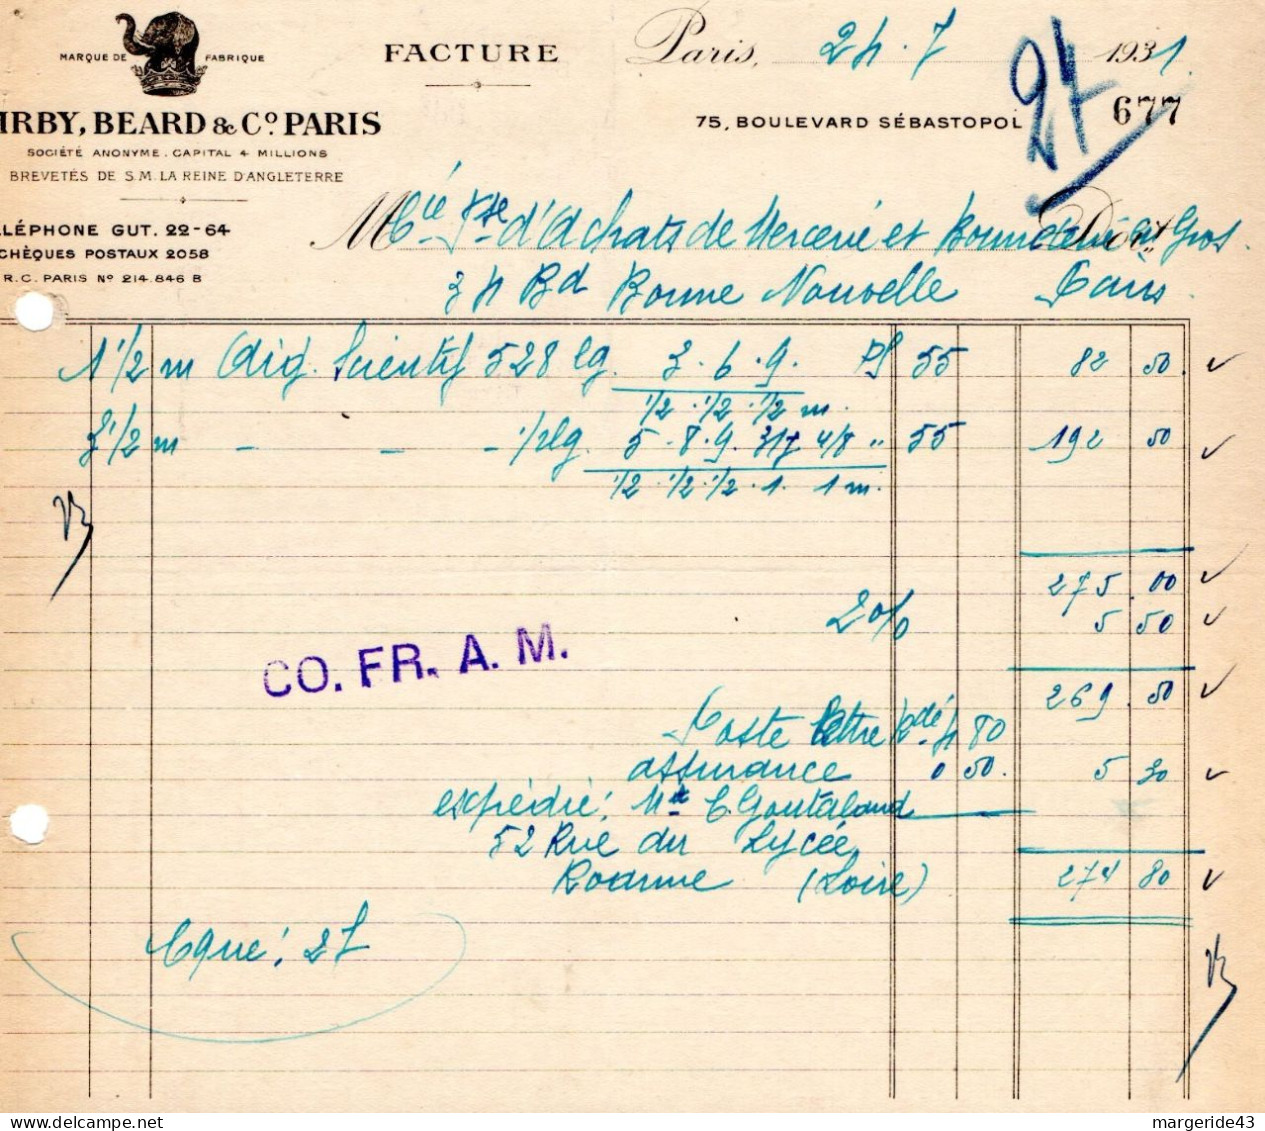 MARQUE DE FABRIQUE
FACTURE
Paris, 24.7 1931.
IRBY, BEARD & Cº. PARIS
75, BOULEVARD SÉBASTOPOL
677
SOCIÉTÉ ANONYME. CAPITAL 4 MILLIONS
BREVETÉS DE S.M. LA REINE D'ANGLETERRE
ÉLÉPHONE GUT. 22-64
CHÈQUES POSTAUX 2058
R.C. PARIS Nº 214.846 B
M Cie Fse d'Achats de Mercerie et Bonneterie en Gros.
Doit
34 Bd Bonne Nouvelle Paris.
1 1/2 m Aig. Scientif 528 lg. 3.6.9. 55 82 50.
1/2.1/2.1/2 m.
3 1/2 m - - - 1/2lg. 5.8.9. 3/7 4/8 " 55 192 50
1/2.1/2.1/2.1. 1 m.
275.00
2% 5 50
CO. FR. A. M.
269.50
Poste lettre Rdée 4 80
assurance 0 50. 5 30
expédié: C. Goutaland
52 Rue du Lycée
Roanne (Loire) 274 80
27